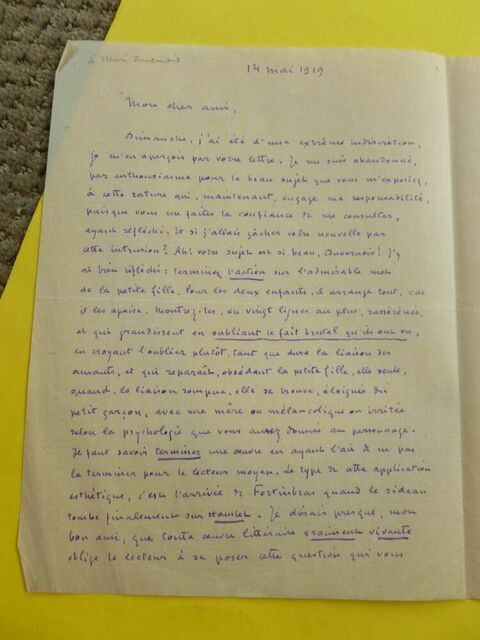 à Henri Duvernois
14 mai 1919
Mon cher ami,
Dimanche, j'ai été d'une extrême indiscrétion,
je m'en aperçois par votre lettre. Je me suis abandonné,
par enthousiasme pour le beau sujet que vous m'exposiez,
à cette rature qui, maintenant, engage ma responsabilité,
puisque vous me faites la confiance de me consulter,
ayant réfléchi. Et si j'allais gâcher votre nouvelle par
cette intrusion? Ah! votre sujet est si beau, Duvernois! J'y
ai bien réfléchi: terminez l'action sur l'admirable mot
de la petite fille. Pour les deux enfants, il arrange tout, car
il les apaise. Montrez-les, en vingt lignes au plus, rassérénés,
et qui grandissent en oubliant le fait brutal qu'ils ont vu,
en croyant l'oublier plutôt, tant que dure la liaison des
amants, et qui reparaît, obsédant la petite fille, elle seule,
quand, la liaison rompue, elle se trouve, éloignée du
petit garçon, avec une mère ou mélancolique ou irritée
selon la psychologie que vous aurez donnée au personnage.
Il faut savoir terminer une œuvre en ayant l'air de ne pas
la terminer pour le lecteur moyen. Le type de cette application
esthétique, c'est l'arrivée de Fortinbras quand le rideau
tombe finalement sur Hamlet. Je dirais presque, mon
bon ami, que toute œuvre littéraire vraiment vivante
oblige le lecteur à se poser cette question qui vous